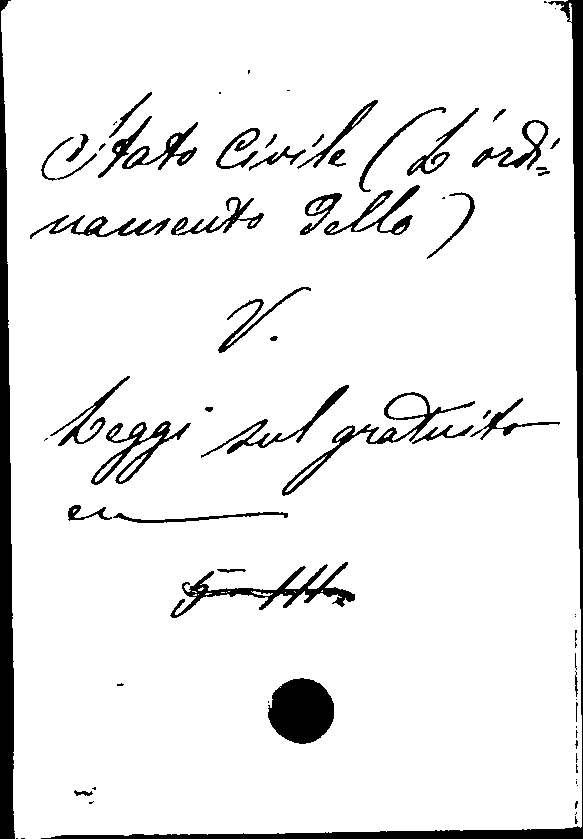 Stato Civile (L'ordi=
namento dello)
V.
Leggi sul gratuito